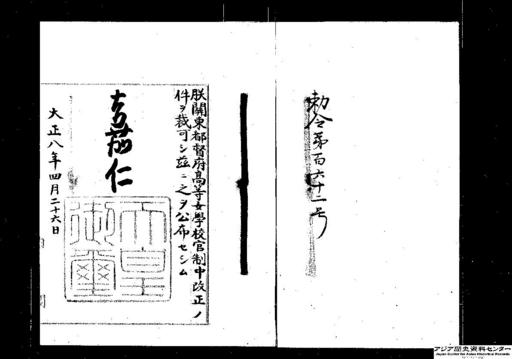 勅令第百六十二号
朕關東都督府高等女學校官制中改正ノ
件ヲ裁可シ茲ニ之ヲ公布セシム
嘉仁
天皇御璽
大正八年四月二十六日
アジア歴史資料センター
Japan Center for Asian Historical Records